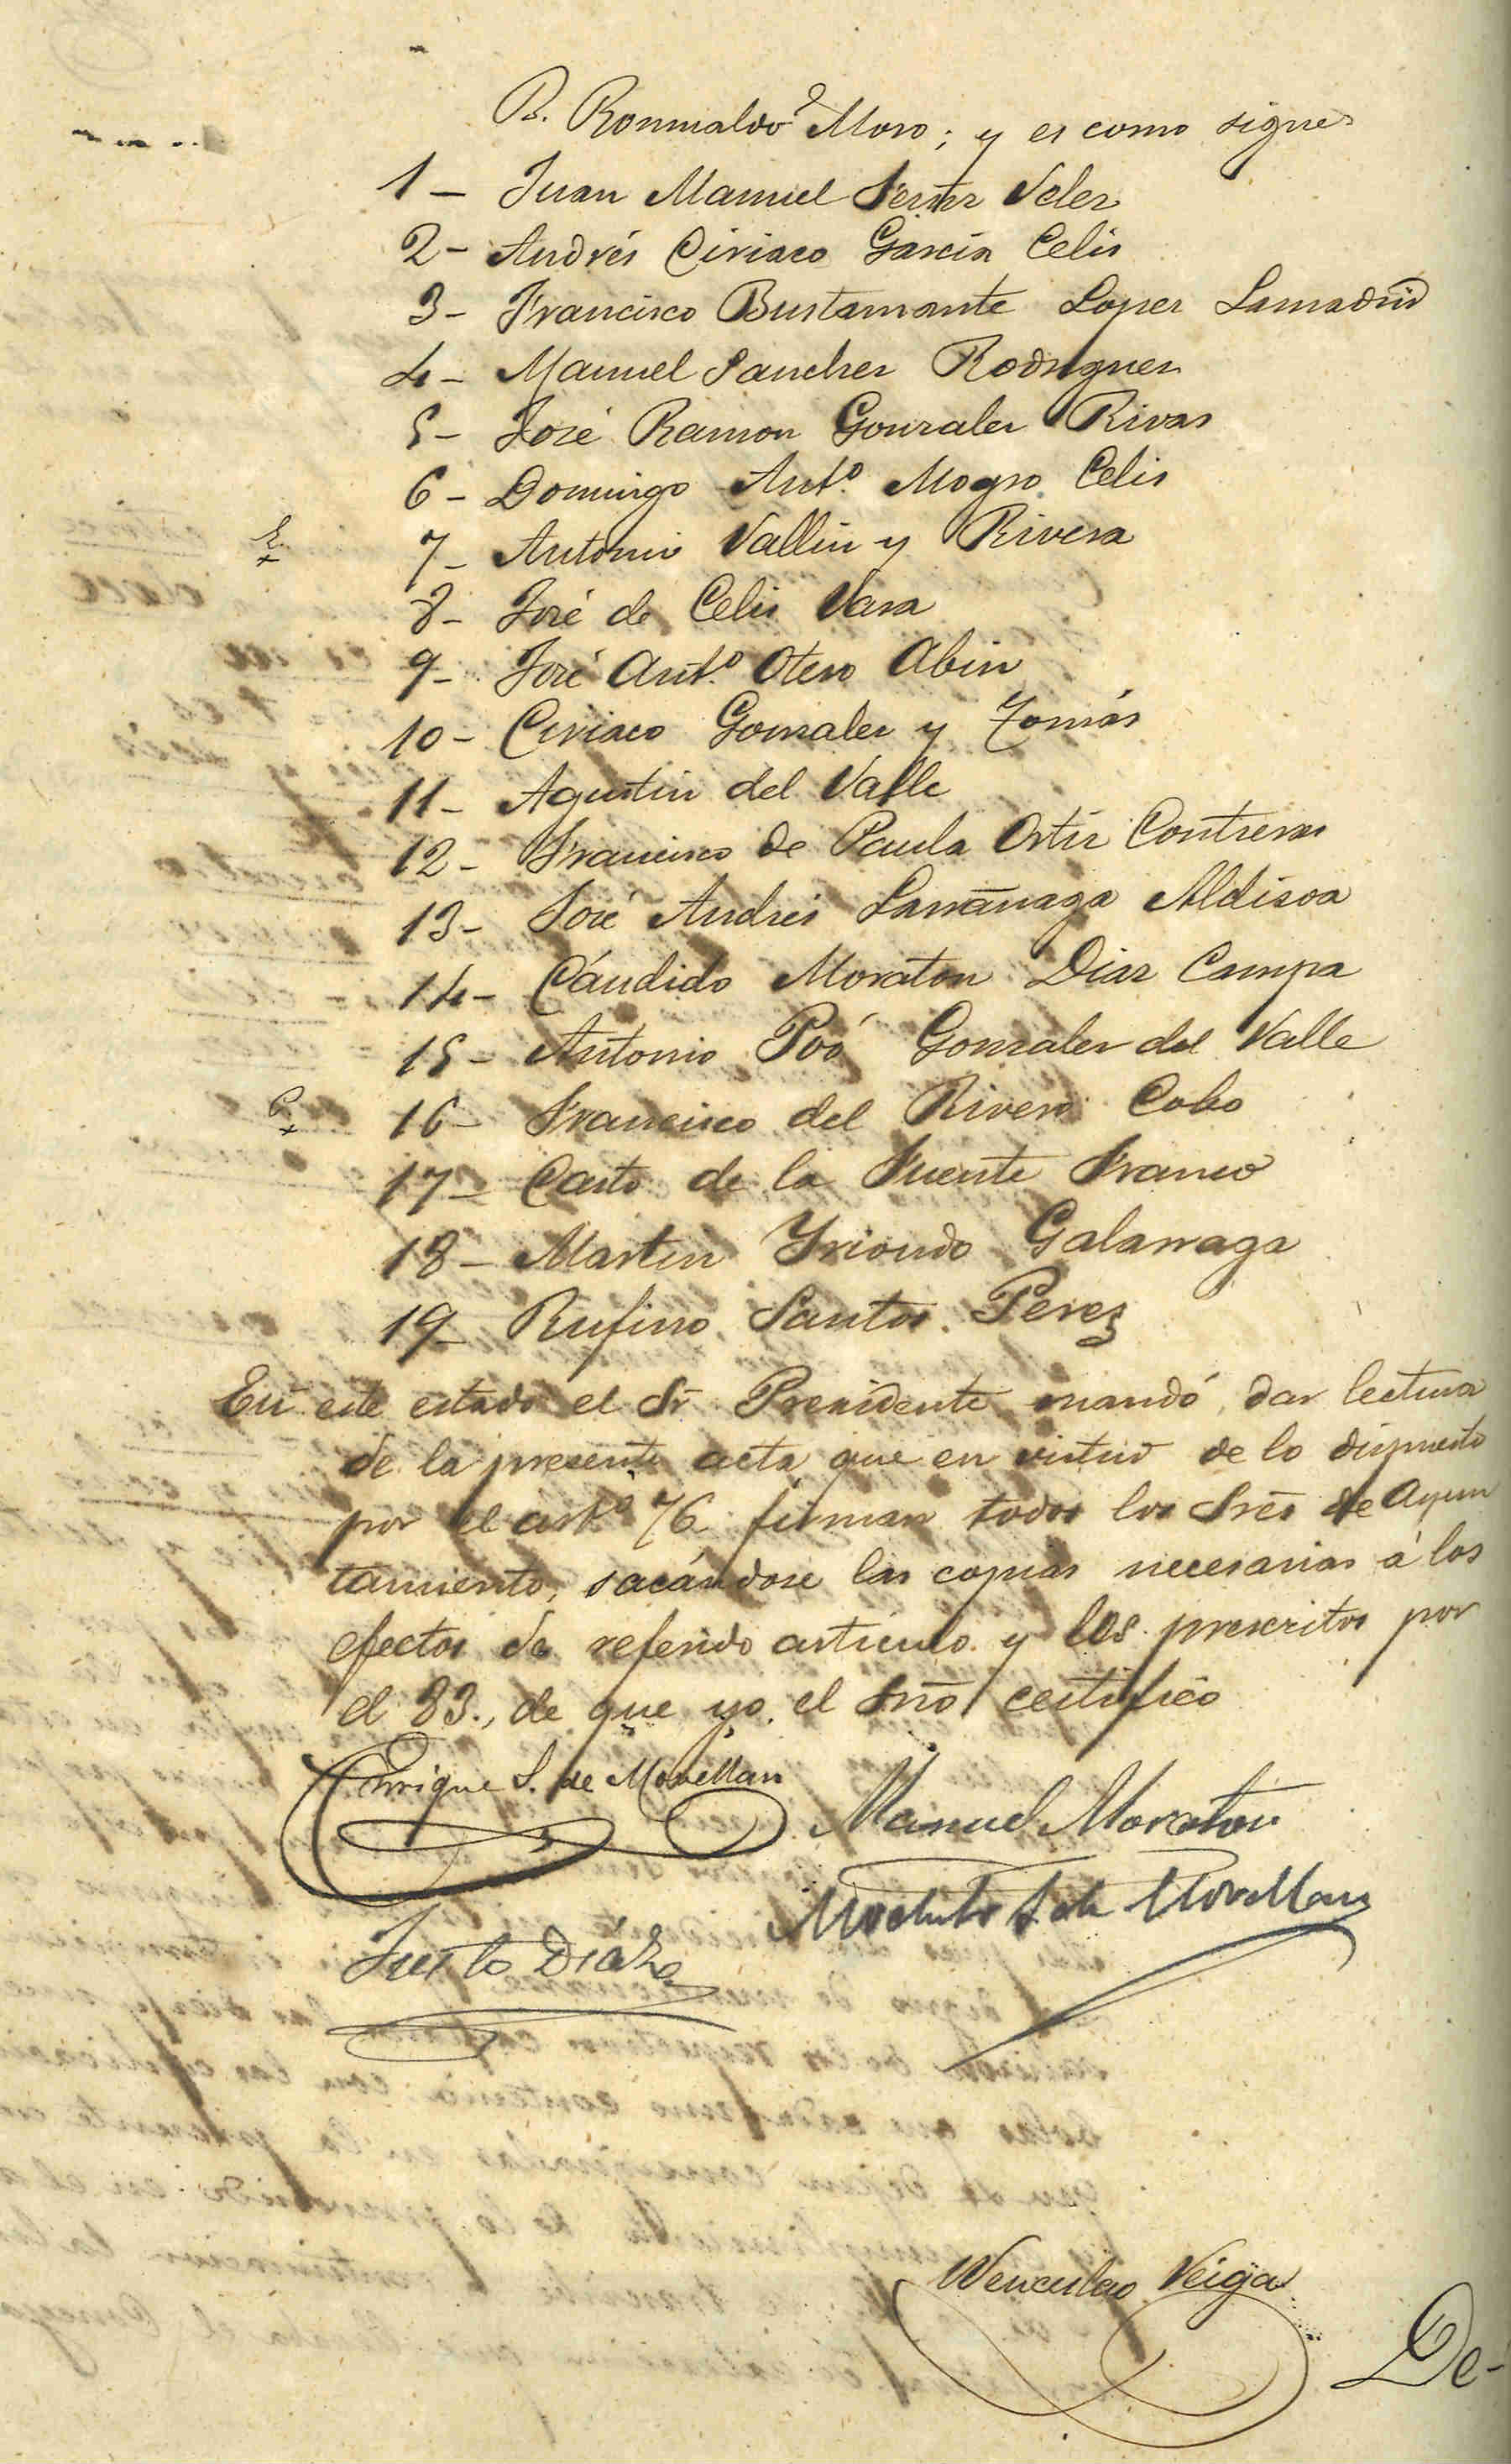 D. Romualdo Moro; y es como sigue
1 - Juan Manuel Ferrer Velez
2 - Andrés Ciriaco Garcia Celis
3 - Francisco Bustamante Lopez Lamadrid
4 - Manuel Sanchez Rodriguez
5 - José Ramon Gonzalez Rivas
6 - Domingo Antº. Mogro Celis
7 - Antonio Vallin y Rivera
8 - José de Celis Vara
9 - José Antº. Otero Abin
10 - Ciriaco Gonzalez y Tomás
11 - Agustin del Valle
12 - Francisco de Paula Ortiz Contreras
13 - José Andres Larrañaga Aldisoa
14 - Cándido Moraton Diaz Campa
15 - Antonio Poó Gonzalez del Valle
16 - Francisco del Rivero Cobo
17 - Casto de la Fuente Franco
18 - Martin Yriondo Galarraga
19 - Rufino Santos Perez
En este estado el Sr Presidente mandó dar lectura
de la presente acta que en virtud de lo dispuesto
por el artº 76 firman todos los Sres de Ayun
tamiento, sacándose las copias necesarias á los
efectos de referido articulo y los prescritos por
el 83., de que yo el Srio certifico
Enrique S. de Movellan
Manuel Moraton
Modesto S. de Movellan
Justo Diáz
Wenceslao Veiga
De-